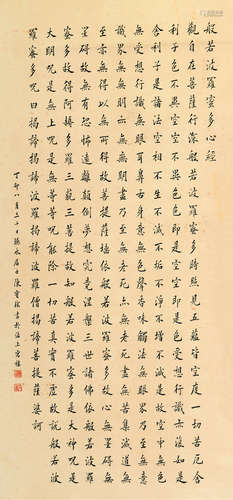 般若波羅蜜多心經
觀自在菩薩行深般若波羅蜜多時照見五蘊皆空度一切苦厄舍
利子色不異空空不異色色即是空空即是色受想行識亦復如是
舍利子是諸法空相不生不滅不垢不淨不增不減是故空中無色
無受想行識無眼耳鼻舌身意無色聲香味觸法無眼界乃至無意
識界無無明亦無無明盡乃至無老死亦無老死盡無苦集滅道無
智亦無得以無所得故菩提薩埵依般若波羅蜜多故心無罣礙無
罣礙故無有恐怖遠離顛倒夢想究竟涅槃三世諸佛依般若波羅
蜜多故得阿耨多羅三藐三菩提故知般若波羅蜜多是大神咒是
大明咒是無上咒是無等等咒能除一切苦真實不虛故說般若波
羅蜜多咒即說咒曰揭諦揭諦波羅揭諦波羅僧揭諦菩提薩婆訶
丁卯八月三十日居士陳書於滬上